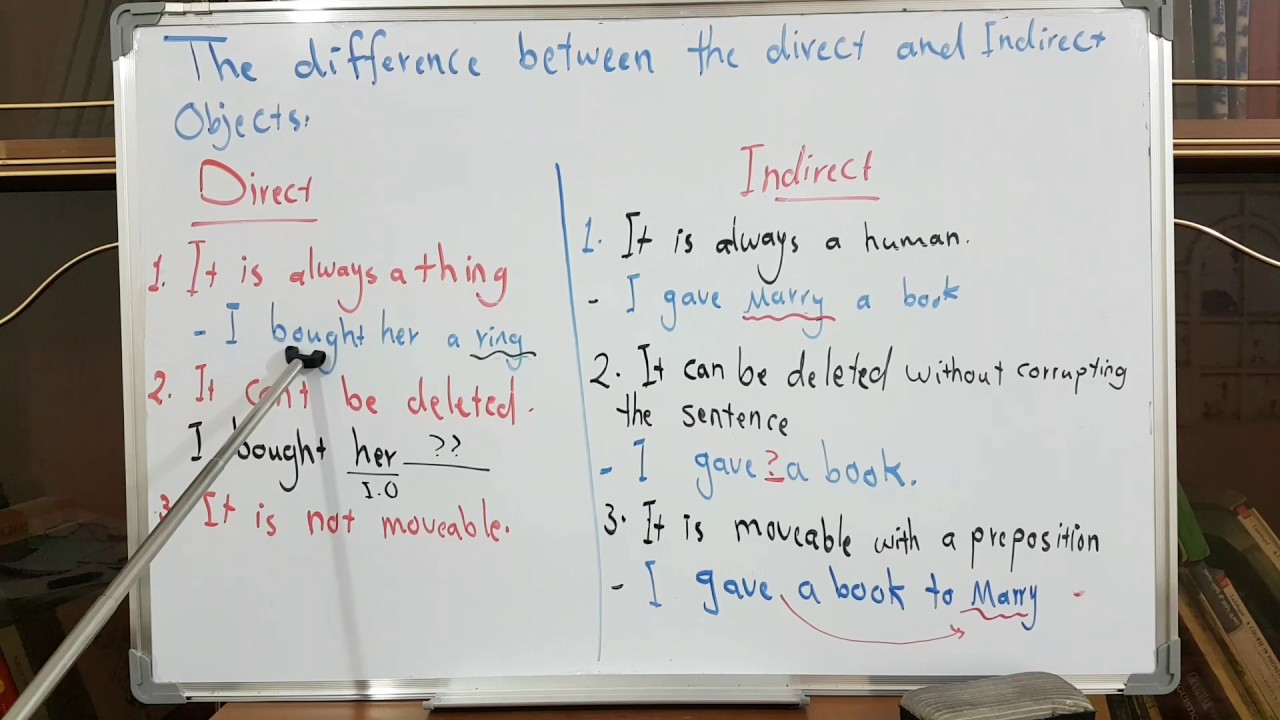 The difference between the direct and Indirect
Objects.
Direct
1. It is always a thing
- I bought her a ring
2. It can't be deleted.
I bought her ??
I.O
3. It is not moveable.
Indirect
1. It is always a human.
- I gave Marry a book
2. It can be deleted without corrupting
the sentence
- I gave ? a book.
3. It is moveable with a preposition
- I gave a book to Marry -